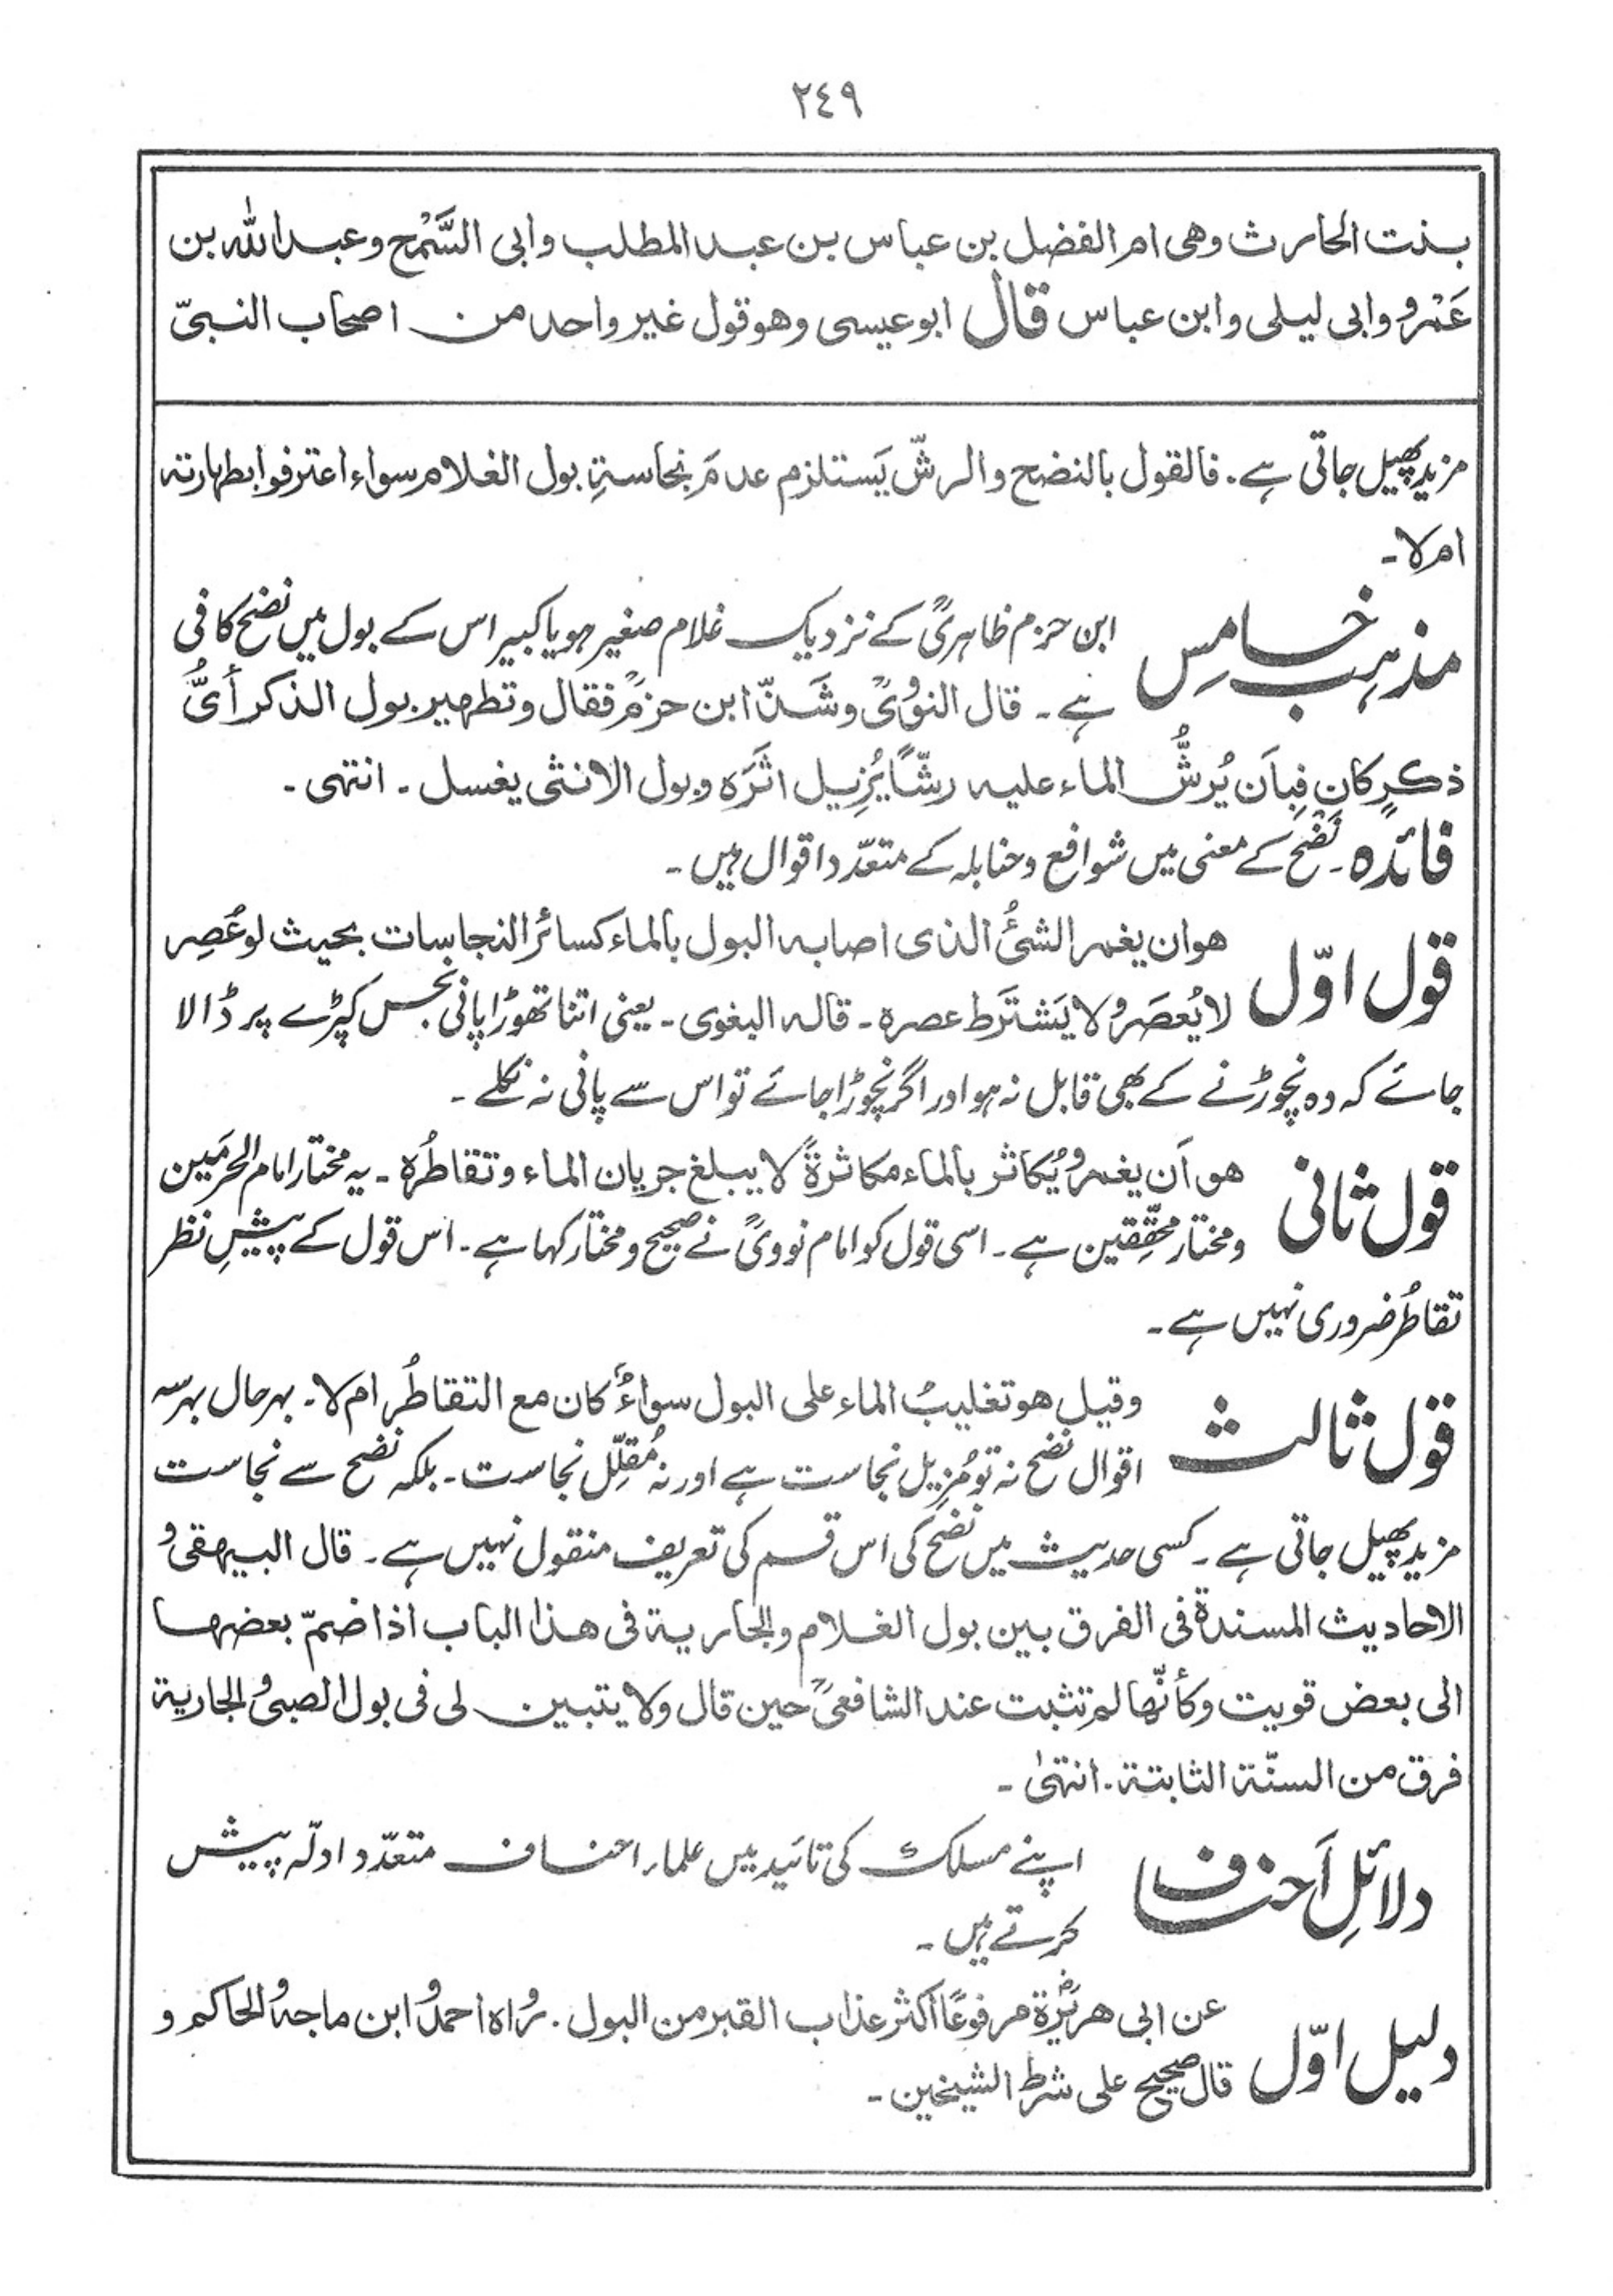 ٢٤٩
بنت الحارث وهی ام الفضل بن عباس بن عبد المطلب وابی السَّمْح وعبد الله بن
عَمْرو وابی لیلی وابن عباس قال ابو عیسی وهو قول غیر واحد من اصحاب النبیّ
مزید پھیل جاتی ہے۔ فالقول بالنضح والرشّ یَستلزم عدمَ نجاسةِ بول الغلام سواء اعترفوا بطهارته
ام لا۔
مذہب خامس ابن حزم ظاہریؒ کے نزدیک غلام صغیر ہو یا کبیر اس کے بول میں نضح کافی
ہے۔ قال النوویؒ وشَذّ ابن حزمؒ فقال وتطهیر بول الذکر أیُّ
ذکرٍ کان فبِأَن یُرشُّ الماء علیه رشًّا یُزِیل اثَرَه وبول الانثی یغسل۔ انتهی۔
فائدہ۔ نَضْح کے معنی میں شوافع وحنابلہ کے متعدّد اقوال ہیں۔
قول اوّل هو ان یغمر الشئُ الذی اصابه البول بالماء کسائر النجاسات بحیث لو عُصِر
لا یُعصَر ولا یَشتَرَط عصره۔ قاله البغوی۔ یعنی اتنا تھوڑا پانی نجس کپڑے پر ڈالا
جائے کہ وہ نچوڑنے کے بھی قابل نہ ہو اور اگر نچوڑا جائے تو اس سے پانی نہ نکلے۔
قول ثانی هو اَن یغمر ویُکاثر بالماء مکاثرةً لا یبلغ جریان الماء وتقاطُره۔ یہ مختار امام الحرمَین
ومختار محقّقِین ہے۔ اسی قول کو امام نوویؒ نے صحیح ومختار کہا ہے۔ اس قول کے پیشِ نظر
تقاطُر ضروری نہیں ہے۔
قول ثالث وقیل هو تغلیبُ الماء علی البول سواءٌ کان مع التقاطُر ام لا۔ بہرحال بہر سہ
اقوال نضح نہ تو مُزیل نجاست ہے اور نہ مُقلِّل نجاست۔ بلکہ نضح سے نجاست
مزید پھیل جاتی ہے۔ کسی حدیث میں نضح کی اس قسم کی تعریف منقول نہیں ہے۔ قال البیهقی و
الاحادیث المسندة فی الفرق بین بول الغلام والجاریة فی هذا الباب اذا ضمّ بعضها
الی بعض قویت وکأنّها لم تثبت عند الشافعیؒ حین قال ولا یتبین لی فی بول الصبی والجاریة
فرق من السنّة الثابتة۔ انتهیٰ۔
دلائلِ اَحناف اپنے مسلک کی تائید میں علماء احناف متعدّد ادلّہ پیش
کرتے ہیں۔
دلیل اوّل عن ابی هریرةؓ مرفوعًا اکثر عذاب القبر من البول۔ رواه احمد وابن ماجه والحاکم و
قال صحیح علی شرط الشیخین۔